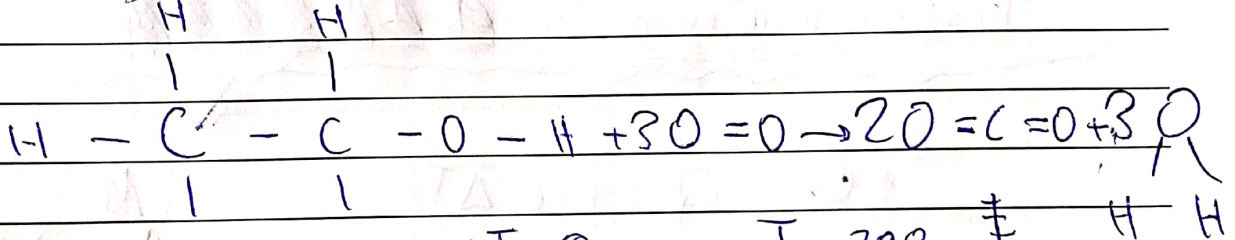 H H
| |
H - C - C - O - H + 3O = O → 2O = C = O + 3O
| | / \
H H